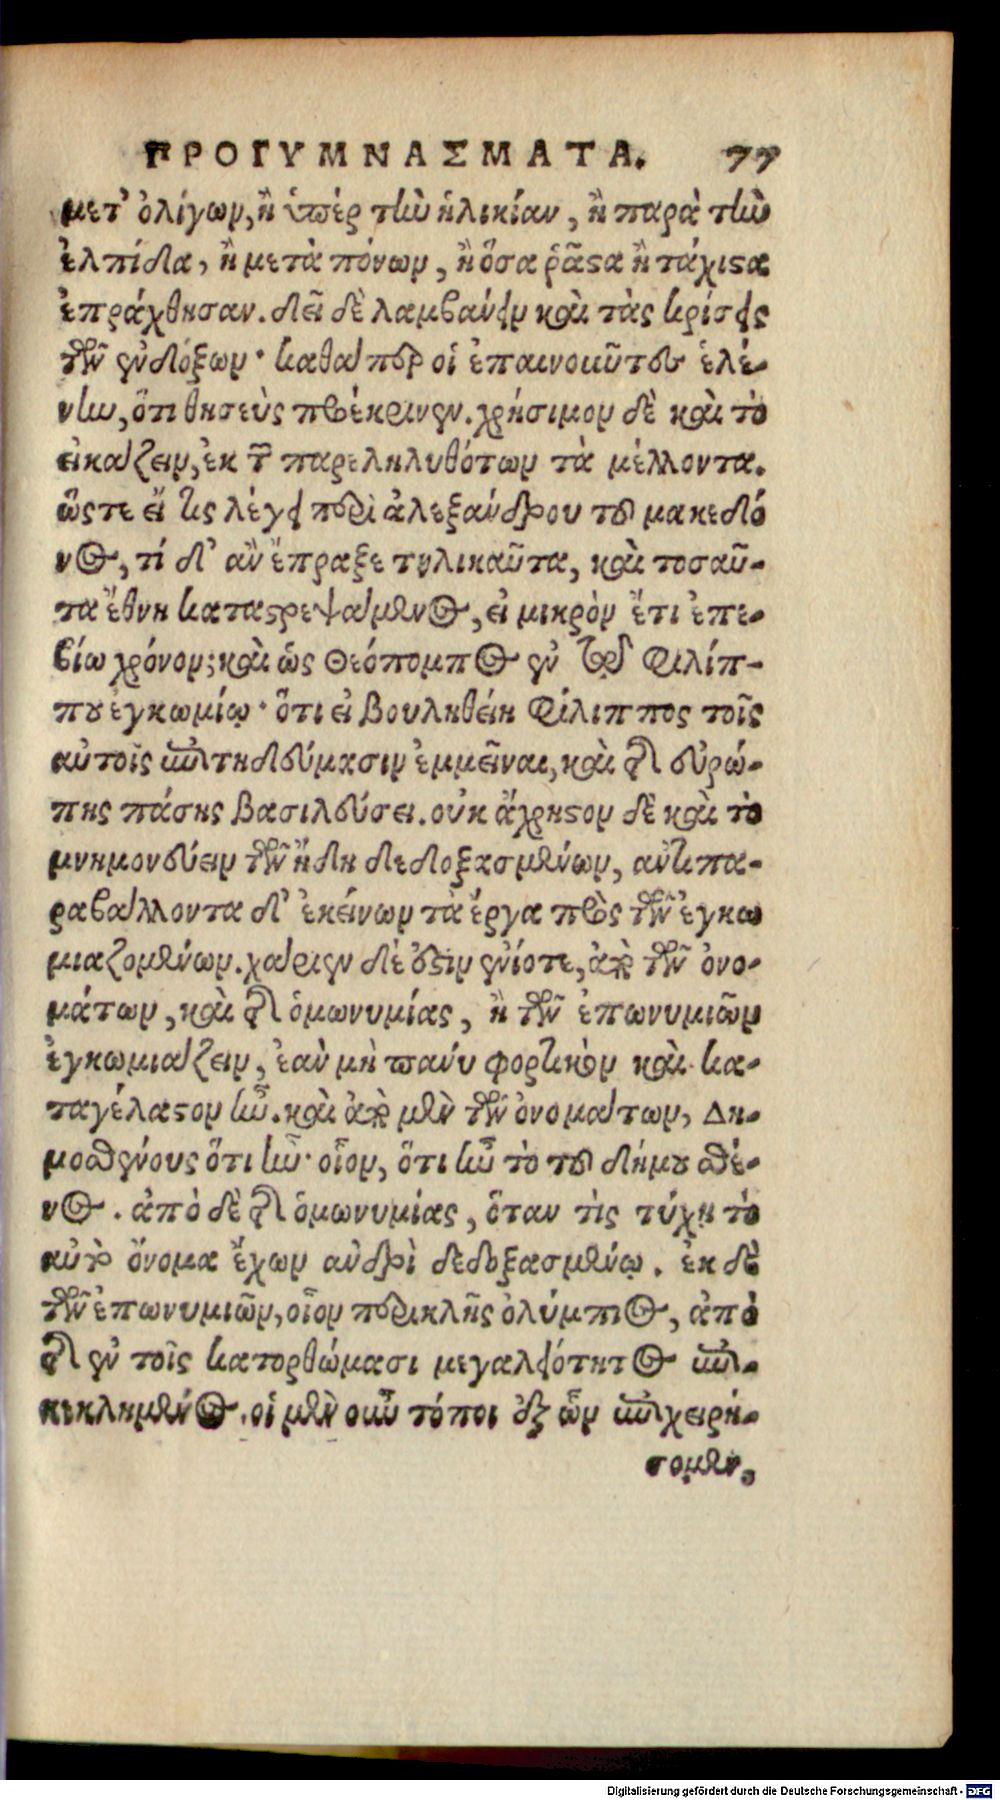 ΠΡΟΓΥΜΝΑΣΜΑΤΑ. 77
μετ' ὀλίγων, ἢ ὑπὲρ τὴν ἡλικίαν, ἢ παρὰ τὴν
ἐλπίδα, ἢ μετὰ πόνων, ἢ ὅσα ῥᾶστα ἢ τάχιστα
ἐπράχθησαν. δεῖ δὲ λαμβάνειν καὶ τὰς κρίσεις
τῶν ἐνδόξων· καθάπερ οἱ ἐπαινοῦντες ἑλέ-
νην, ὅτι θησεὺς προέκρινεν. χρήσιμον δὲ καὶ τὸ
εἰκάζειν, ἐκ τῶν παρεληλυθότων τὰ μέλλοντα.
ὥστε εἴ τις λέγει περὶ ἀλεξάνδρου τοῦ μακεδό
νος, τί δ' ἂν ἔπραξε τηλικαῦτα, καὶ τοσαῦ-
τα ἔθνη καταστρεψάμενος, εἰ μικρὸν ἔτι ἐπε-
βίω χρόνον; καὶ ὡς Θεόπομπος ἐν τῷ Φιλίπ-
που ἐγκωμίῳ· ὅτι εἰ βουληθείη Φίλιππος τοῖς
αὐτοῖς ἐπιτηδεύμασιν ἐμμεῖναι, καὶ τῆς εὐρώ-
πης πάσης βασιλεύσει. οὐκ ἄχρηστον δὲ καὶ τὸ
μνημονεύειν τῶν ἤδη δεδοξασμένων, ἀντιπα-
ραβάλλοντα δι' ἐκείνων τὰ ἔργα πρὸς τῶν ἐγκω
μιαζομένων. χάριεν δέ ἐστιν ἐνίοτε, ἀπὸ τῶν ὀνο-
μάτων, καὶ τῆς ὁμωνυμίας, ἢ τῶν ἐπωνυμιῶν
ἐγκωμιάζειν, ἐὰν μὴ πάνυ φορτικὸν καὶ κα-
ταγέλαστον ᾖ. καὶ ἀπὸ μὲν τῶν ὀνομάτων, Δη-
μοσθένους ὅτι ἦν· οἷον, ὅτι ἦν τὸ τοῦ δήμου σθέ-
νος. ἀπὸ δὲ τῆς ὁμωνυμίας, ὅταν τὶς τύχῃ τὸ
αὐτὸ ὄνομα ἔχων ἀνδρὶ δεδοξασμένῳ. ἐκ δὲ
τῶν ἐπωνυμιῶν, οἷον περικλῆς ὀλύμπιος, ἀπὸ
τῆς ἐν τοῖς κατορθώμασι μεγαλειότητος ἐπι-
κεκλημένος. οἱ μὲν οὖν τόποι ἐξ ὧν ἐπιχειρή-
σομεν,
Digitalisierung gefördert durch die Deutsche Forschungsgemeinschaft - DFG